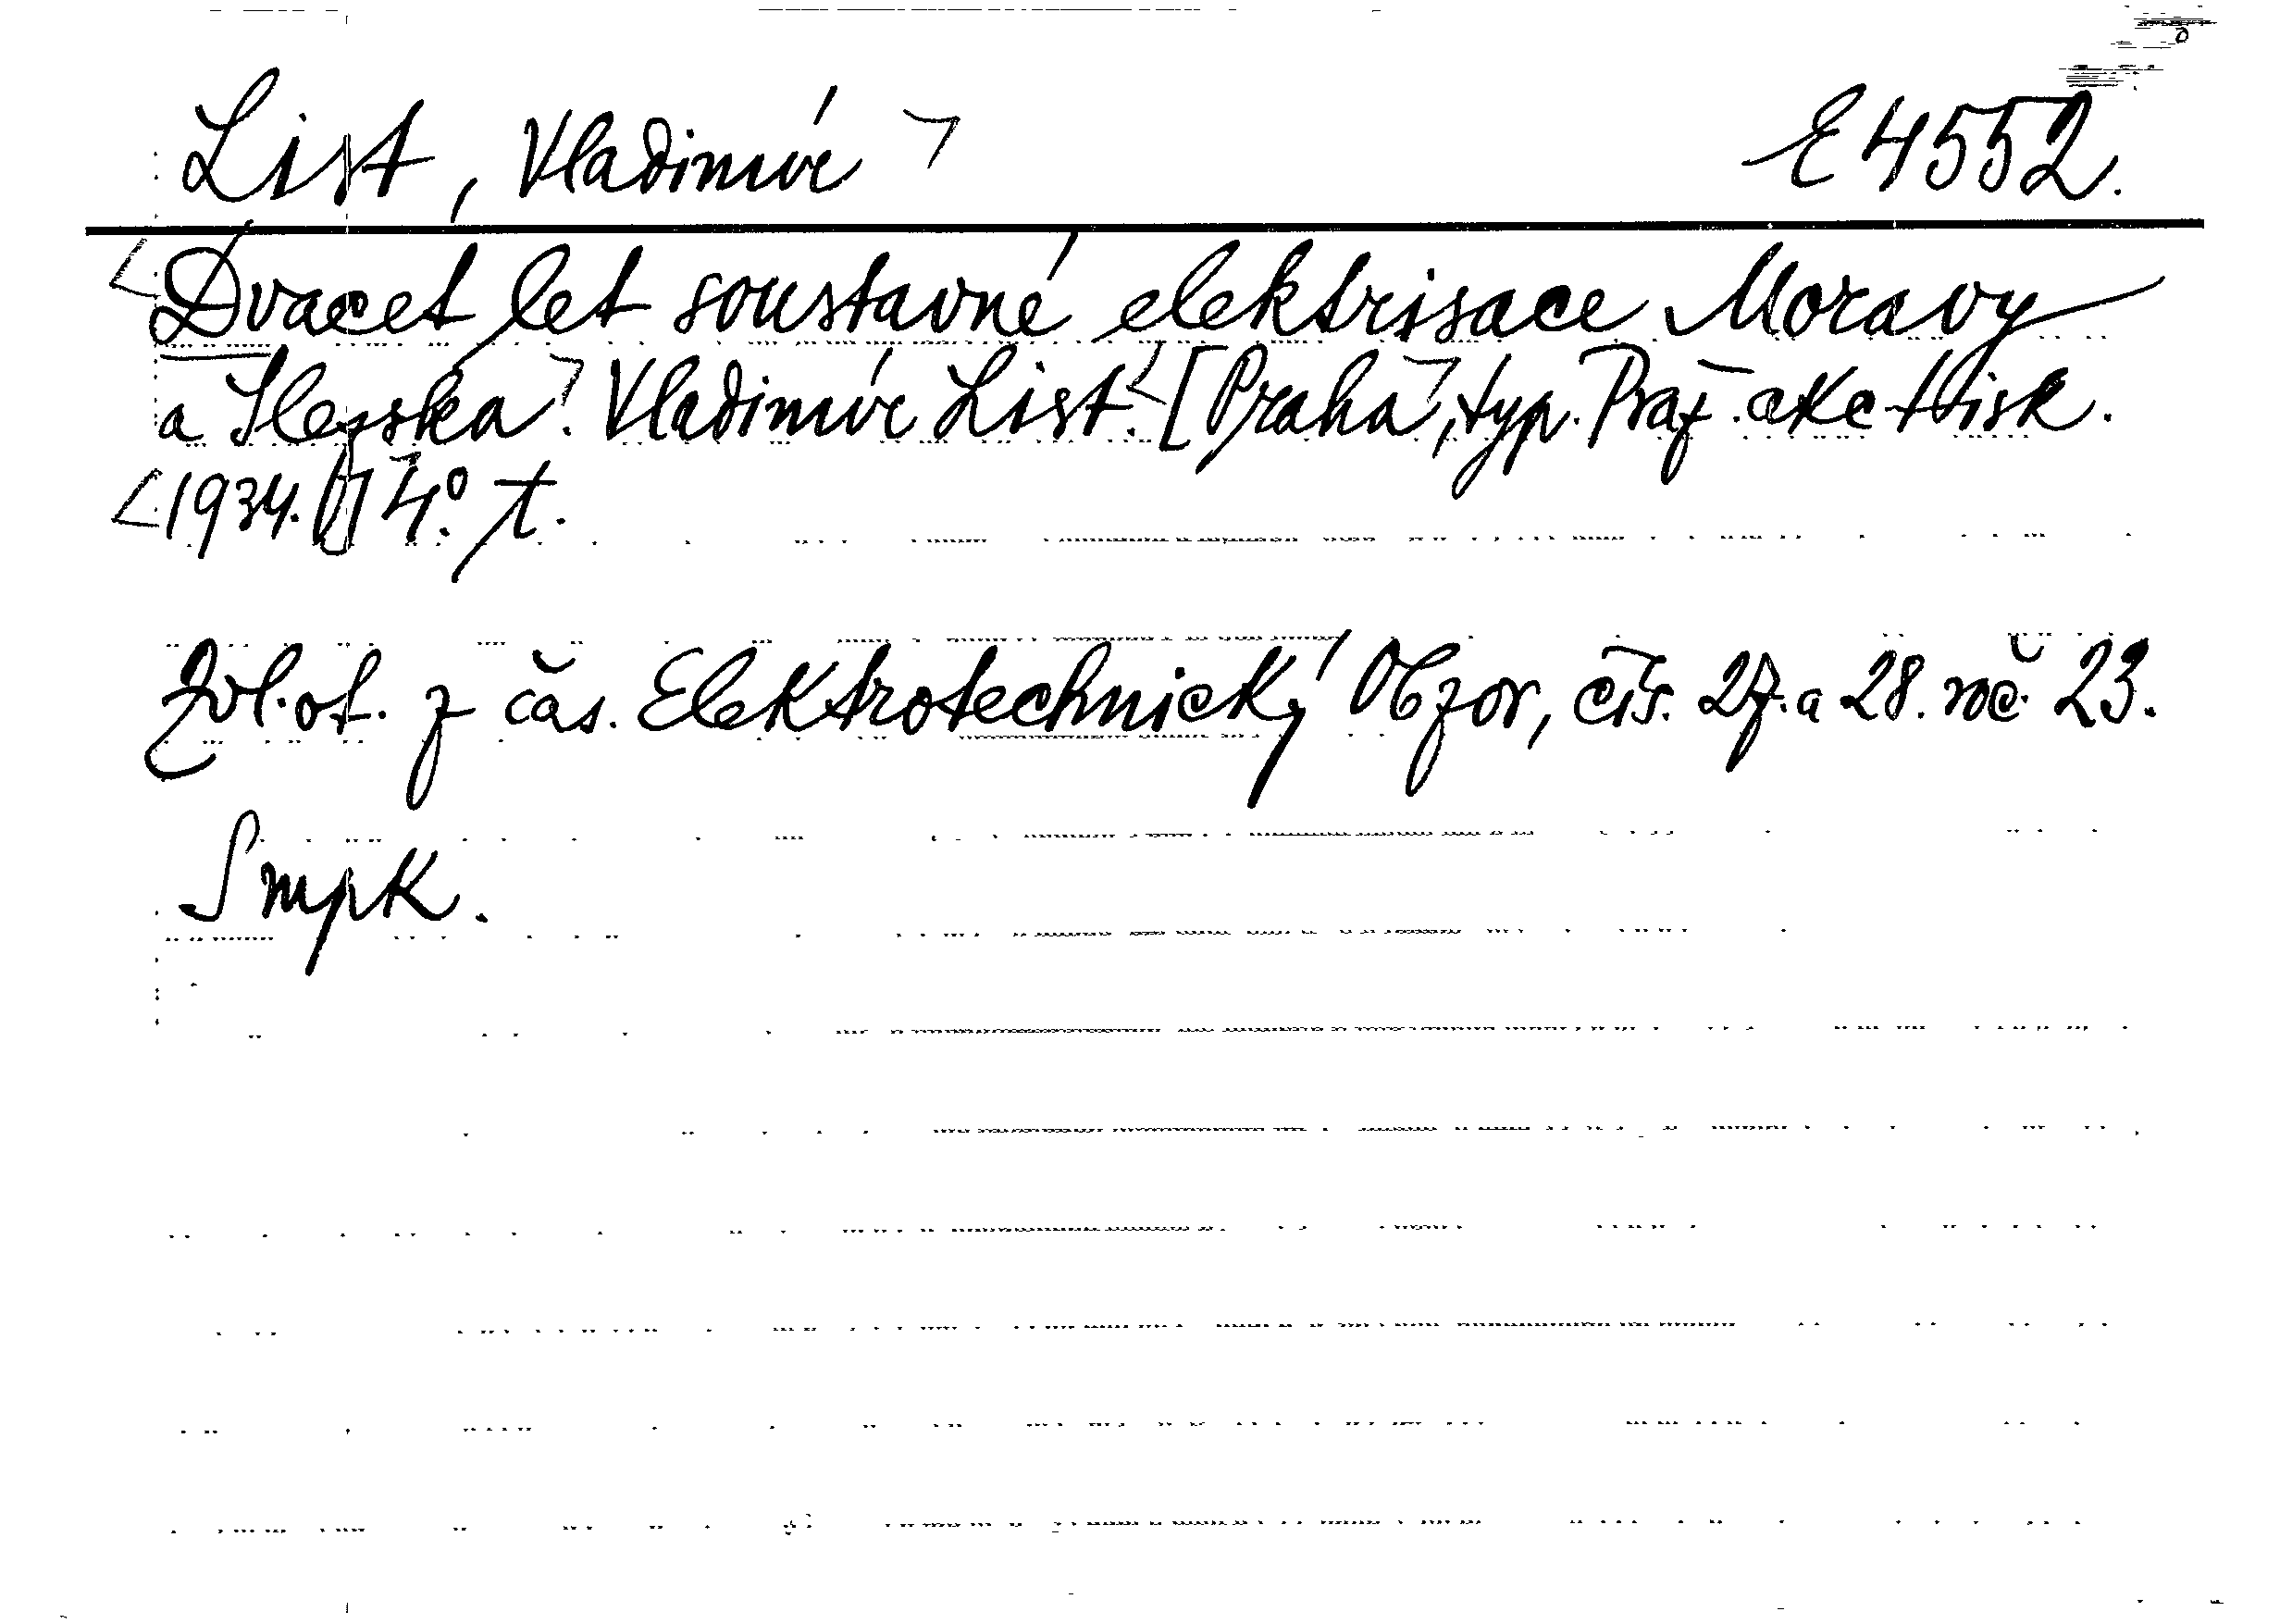 List, Vladimír E 4552.
Dvacet let soustavné elektrisace Moravy
a Slezska. Vladimír List. [Praha, typ. Praž. akc. tisk.
1934.] 4.° t.
Zvl. ot. z čas. Elektrotechnický Obzor, čís. 27. a 28. roč. 23.
Smpk.